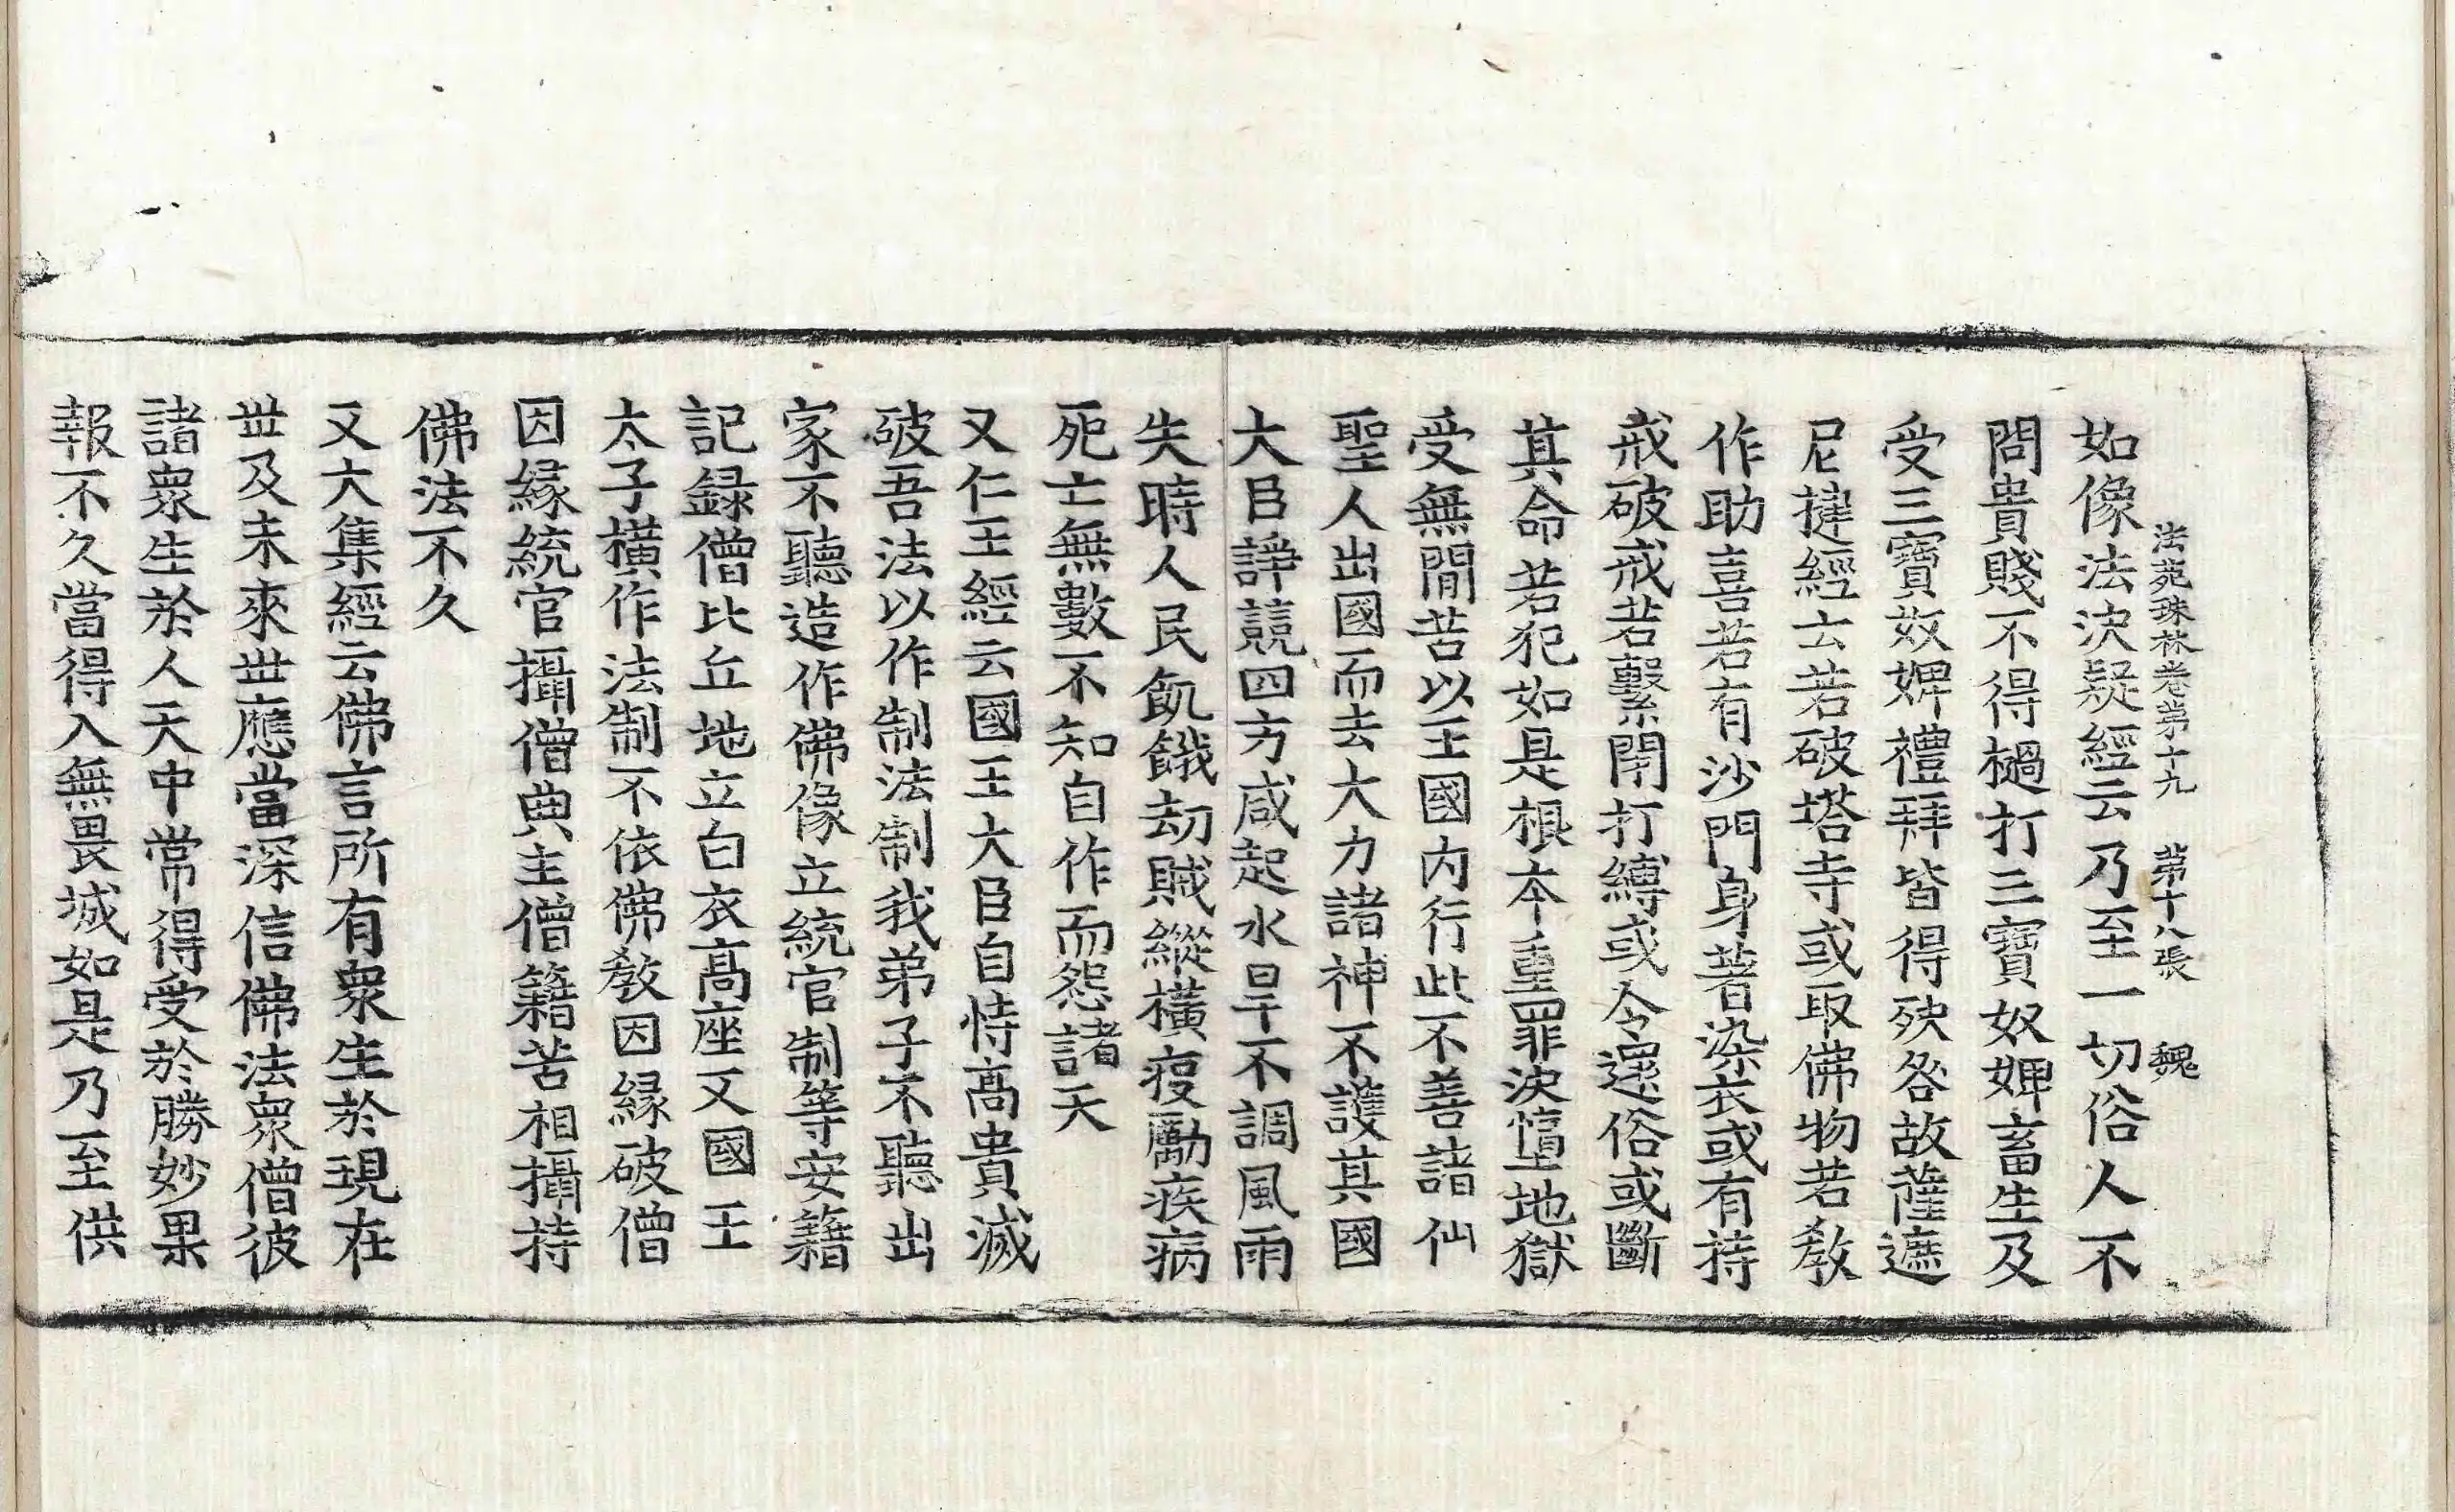 法苑珠林卷第十九 第十八張 魏
如像法決疑經云乃至一切俗人不
問貴賤不得檛打三寶奴婢畜生及
受三寶奴婢禮拜皆得殃咎故薩遮
尼揵經云若破塔寺或取佛物若教
作助喜若有沙門身著染衣或有持
戒破戒若繫閉打縛或令還俗或斷
其命若犯如是根本重罪決墮地獄
受無閒苦以王國內行此不善諸仙
聖人出國而去大力諸神不護其國
大臣諍競四方咸起水旱不調風雨
失時人民飢餓劫賊縱橫疫勵疾病
死亡無數不知自作而怨諸天
又仁王經云國王大臣自恃高貴滅
破吾法以作制法制我弟子不聽出
家不聽造作佛像立統官制等安籍
記録僧比丘地立白衣高座又國王
太子橫作法制不依佛教因緣破僧
因緣統官攝僧典主僧籍苦相攝持
佛法不久
又大集經云佛言所有衆生於現在
世及未來世應當深信佛法衆僧彼
諸衆生於人天中常得受於勝妙果
報不久當得入無畏城如是乃至供